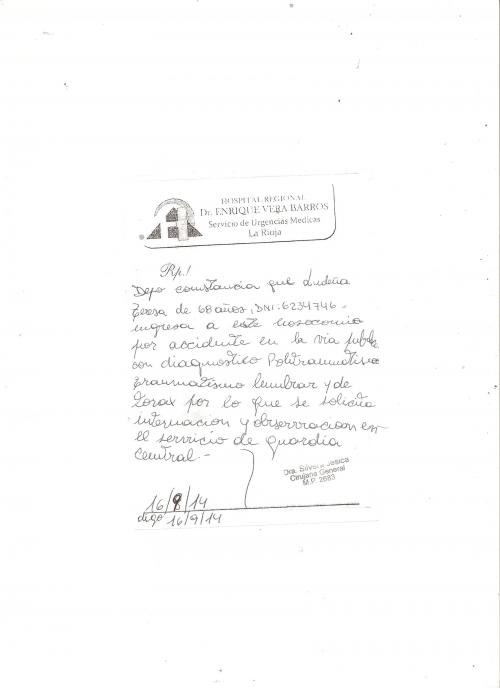 HOSPITAL REGIONAL
Dr. ENRIQUE VERA BARROS
Servicio de Urgencias Medicas
La Rioja
Rp.!
Dejo constancia que Ludeña
Teresa de 68 años, DNI: 6234746 -
ingresa a este nosocomio
por accidente en la via public
con diagnostico Politraumatismo
traumatismo lumbrar y de
torax por lo que se solicita
internacion y observacion en
el servicio de guardia
central.-
Dra. Jesica
Cirujana General
M.P. 2683
16/8/14
digo 16/9/14